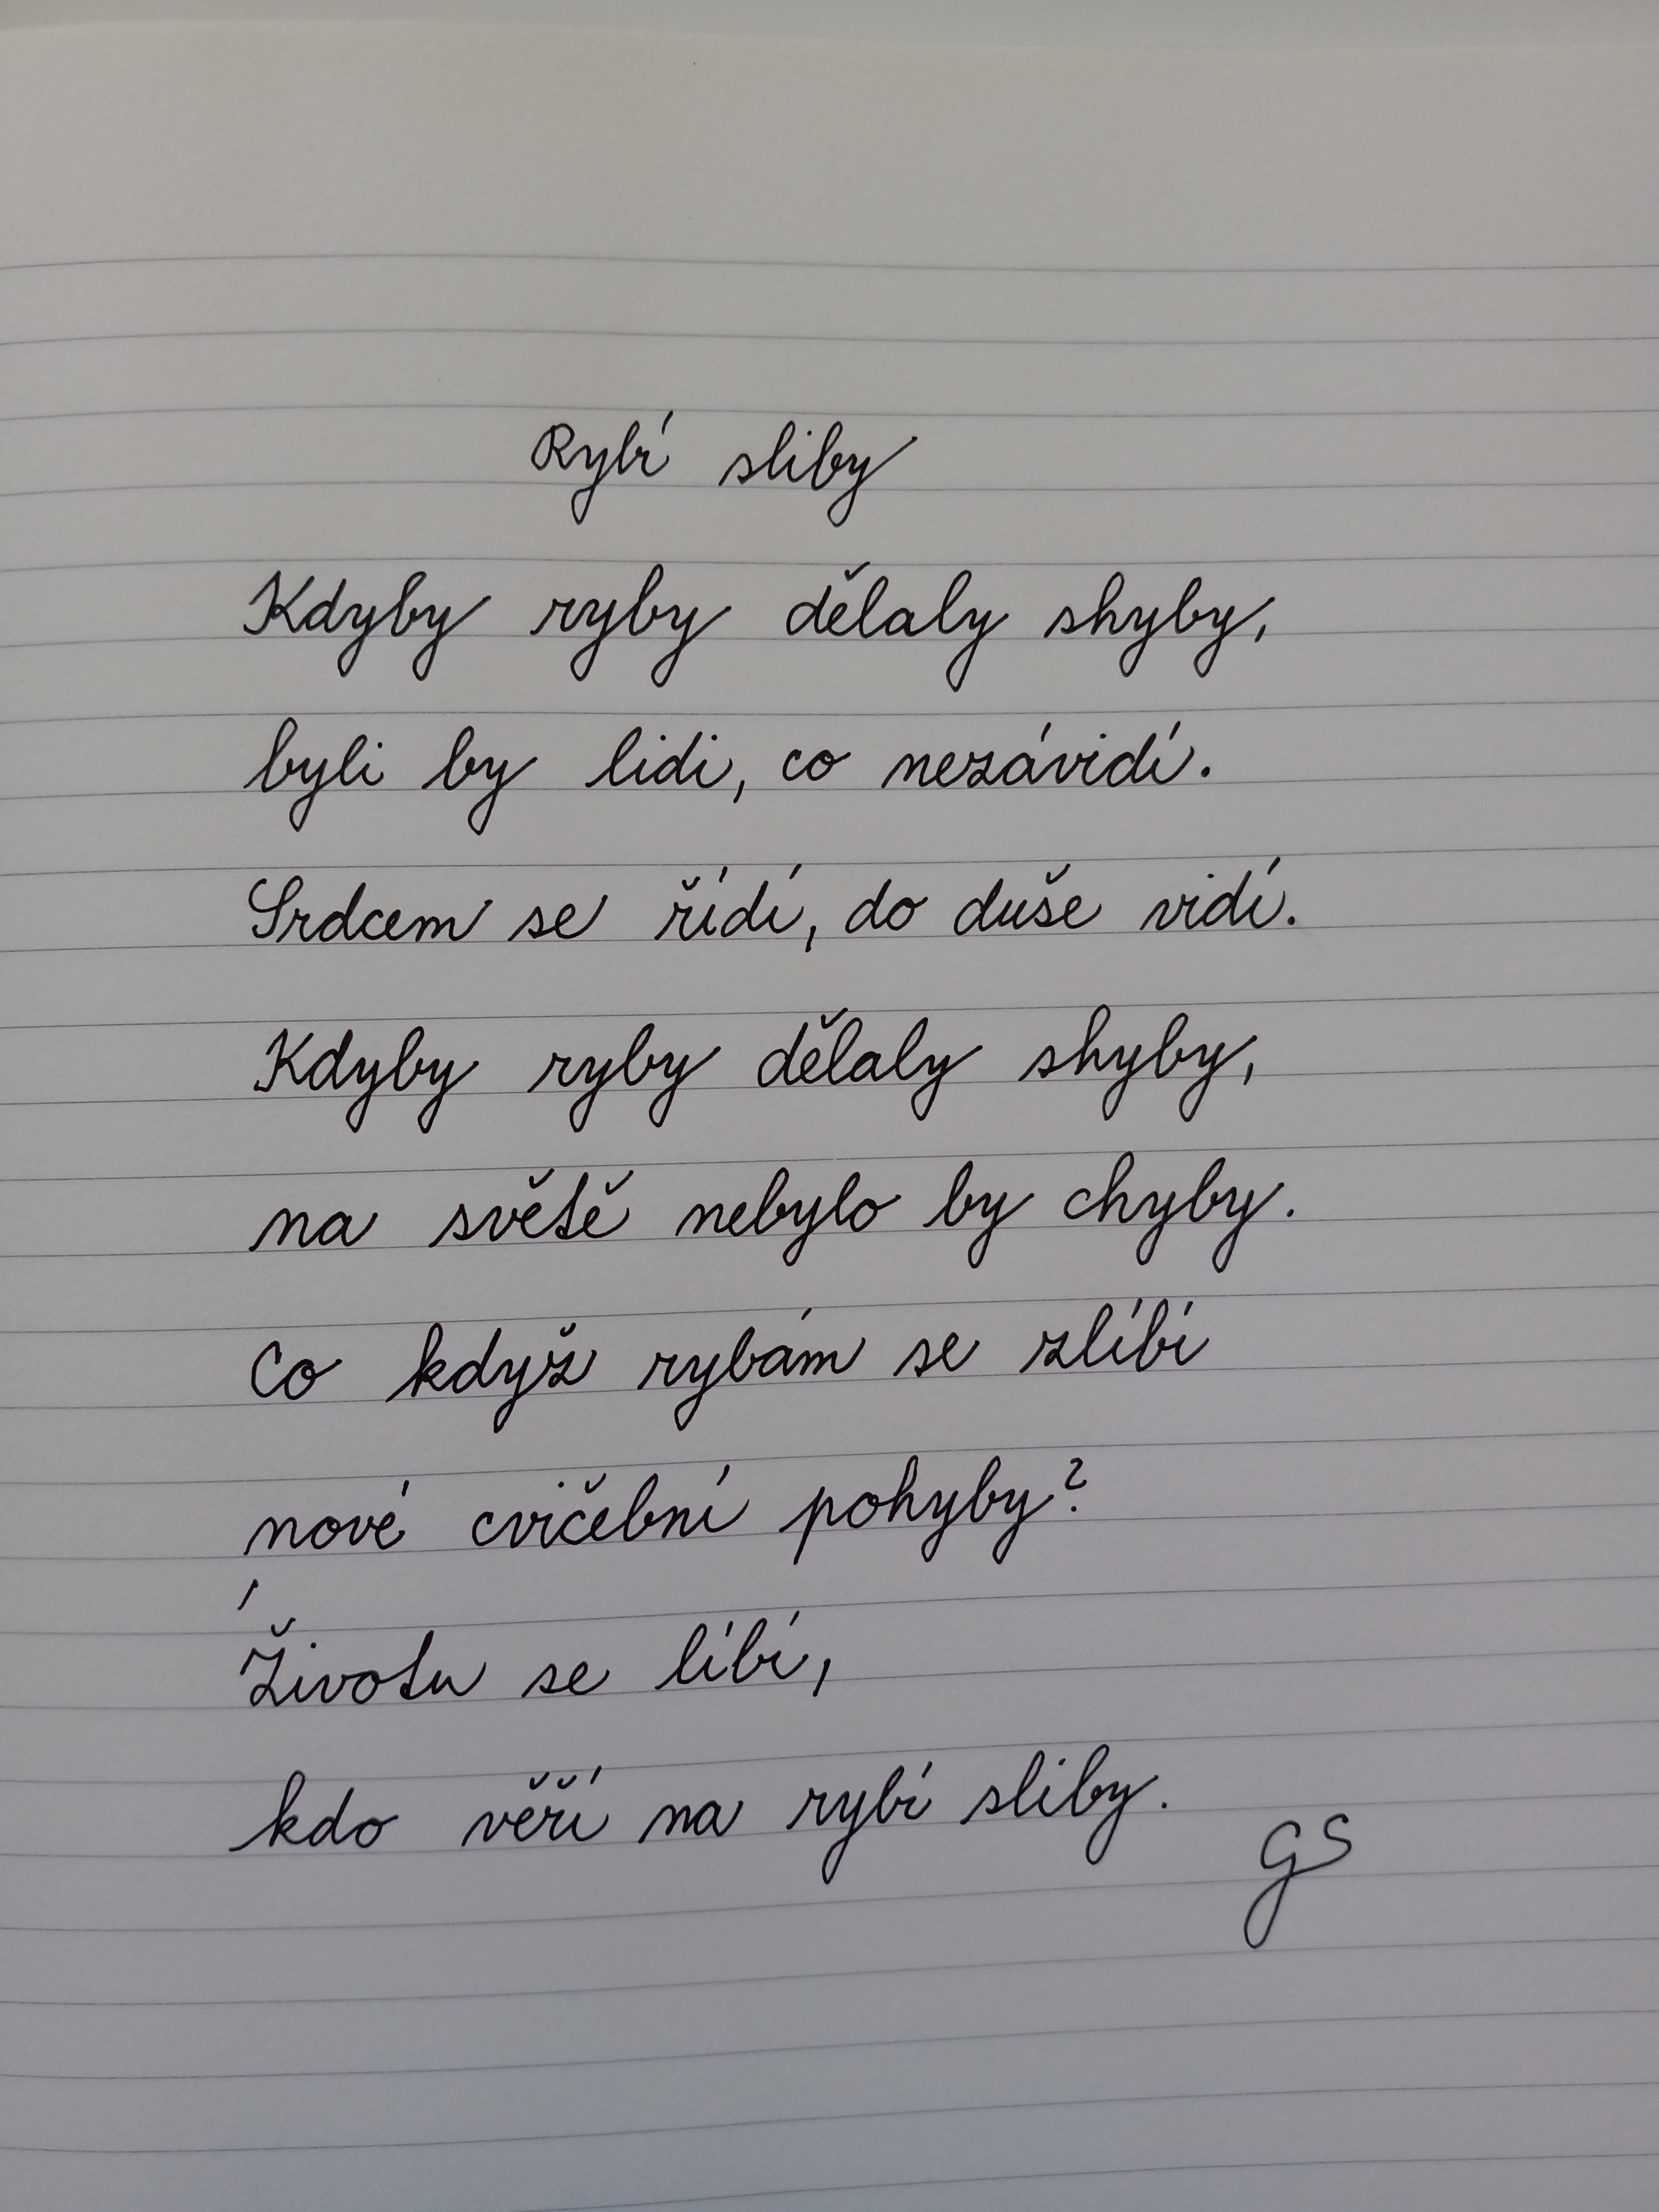 Rybí sliby
Kdyby ryby dělaly shyby,
byli by lidi, co nezávidí.
Srdcem se řídí, do duše vidí.
Kdyby ryby dělaly shyby,
na světě nebylo by chyby.
Co když rybám se zlíbí
nové cvičební pohyby?
Životu se líbí,
kdo věří na rybí sliby.
GS